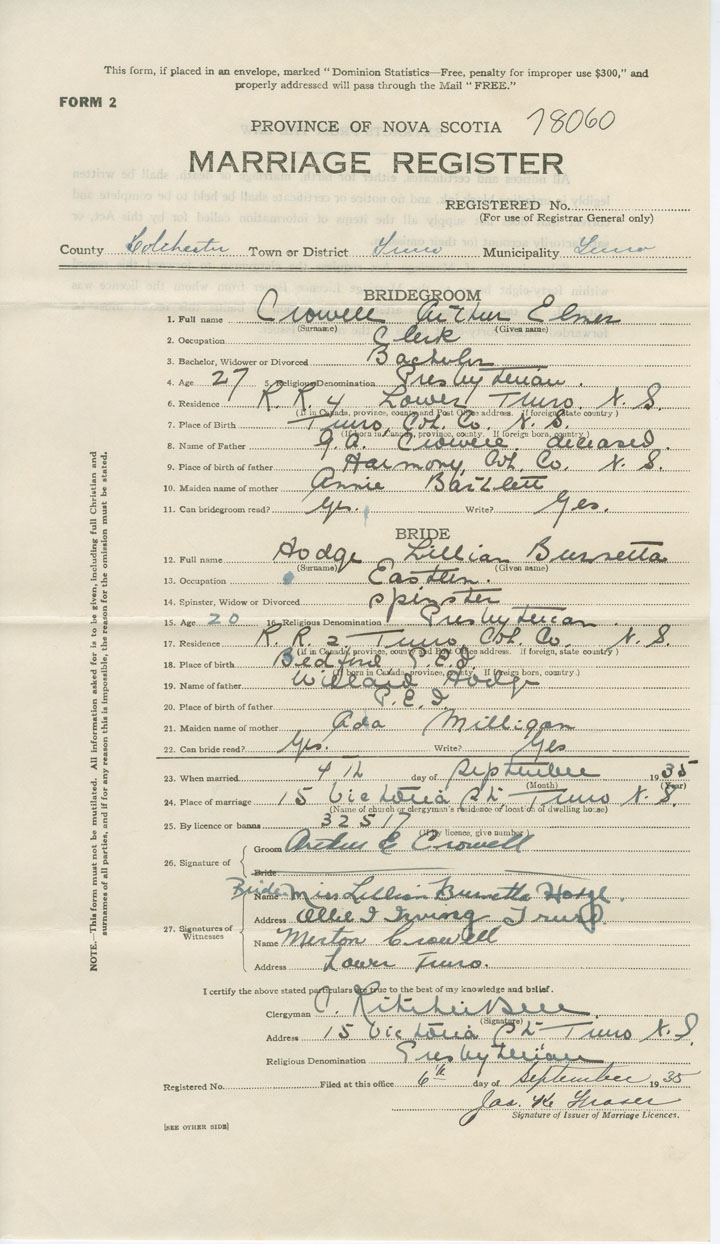 This form, if placed in an envelope, marked "Dominion Statistics—Free, penalty for improper use $300," and
properly addressed will pass through the Mail "FREE."
FORM 2
PROVINCE OF NOVA SCOTIA 78060
MARRIAGE REGISTER
REGISTERED No.
(For use of Registrar General only)
County Colchester Town or District Truro Municipality Truro
BRIDEGROOM
1. Full name Crowell Arthur Elmer
(Surname) (Given name)
2. Occupation Clerk
3. Bachelor, Widower or Divorced Bachelor
4. Age 27 5. Religious Denomination Presbyterian.
6. Residence R. R. 4 Lower Truro, N. S.
(If in Canada, province, county and Post Office address. If foreign, state country)
7. Place of Birth Truro, Col. Co. N. S.
(If born in Canada, province, county. If foreign born, country.)
8. Name of Father G. A. Crowell, deceased.
9. Place of birth of father Harmony, Col. Co. N. S.
10. Maiden name of mother Annie Bartlett
11. Can bridegroom read? Yes. Write? Yes.
BRIDE
12. Full name Hodge Lillian Burnetta
(Surname) (Given name)
13. Occupation
14. Spinster, Widow or Divorced Spinster
15. Age 20 16. Religious Denomination Presbyterian.
17. Residence R. R. 2. Truro, Col. Co. N. S.
(If in Canada, province, county and Post Office address. If foreign, state country)
18. Place of birth Bedford P.E.I.
(If born in Canada, province, county. If foreign born, country.)
19. Name of father Willard Hodge
20. Place of birth of father P.E.I.
21. Maiden name of mother Ada Milligan
22. Can bride read? Yes. Write? Yes
23. When married 4th day of September 1935
(Month) (Year)
24. Place of marriage 15 Victoria St. Truro N. S.
(Name of church or clergyman's residence or location of dwelling house)
25. By licence or banns 32517
(If by licence, give number)
26. Signature of Groom Arthur E Crowell
Bride
Bride Name Miss Lillian Burnetta Hodge.
27. Signatures of Witnesses
Address Ollie I Irving Truro
Name Merton Crowell
Address Lower Truro.
I certify the above stated particulars are true to the best of my knowledge and belief.
Clergyman C. Ritchie Bell
(Signature)
Address 15 Victoria St. Truro N.S.
Religious Denomination Presbyterian
Registered No. Filed at this office 6th day of September 1935
Jas. K. Fraser
Signature of Issuer of Marriage Licences.
[SEE OTHER SIDE]
NOTE.—This form must not be mutilated. All information asked for is to be given, including full Christian and
surnames of all parties, and if for any reason this is impossible, the reason for the omission must be stated.